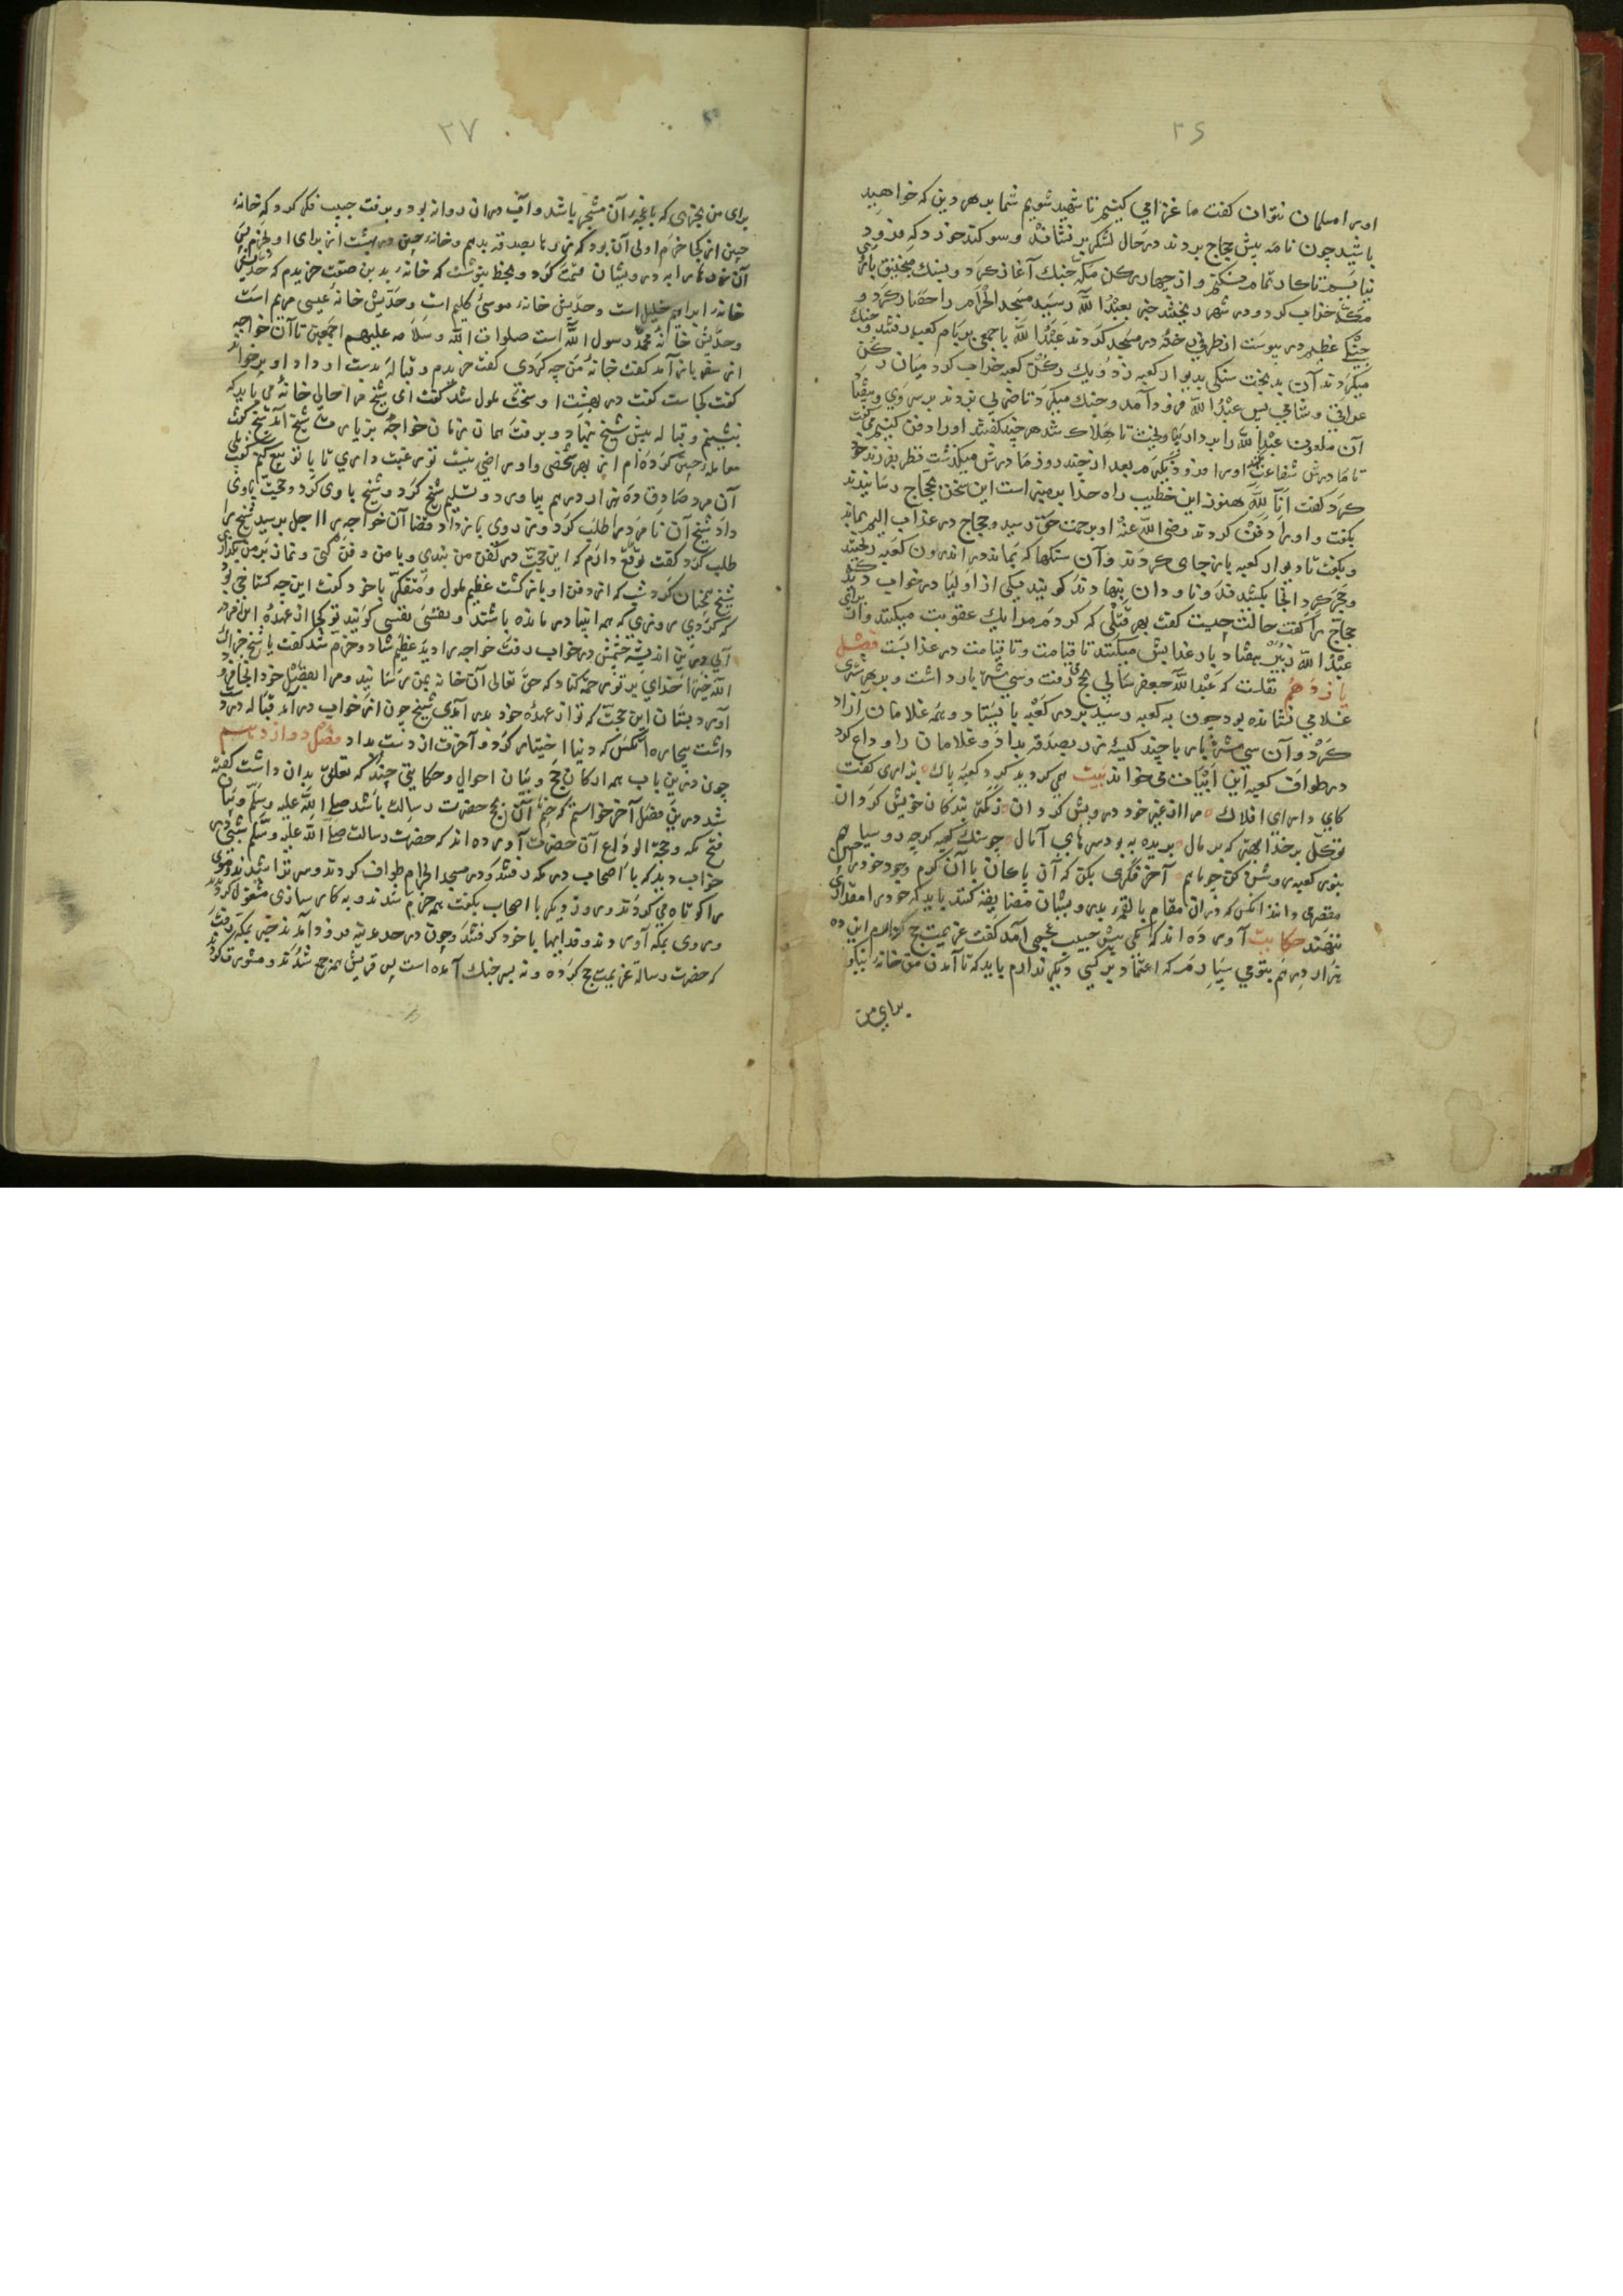 ۳۶
او را مسلمان نتوان کفت ما غزامی کنیم تا شهید شویم شما بدهر دین که خواهید
باشید چون نامه پیش حجاج بردند در حال لشکر بر نشاند و سوکند خورد که فرود
نیایم تا کار تمام نکنم و از چهار رکن مکه جنك آغاز کرد و بسنك منجنیق باره
مکه خراب کرد و در شهر ریختند خبر بعبد الله رسید مسجد الحرام را حصار کرد و
جنکی عظیم در پیوست از طرفی رخنه در مسجد کردند عبد الله با جمعی بر بام کعبه رفتند و جنك
میکردند آن بدبخت سنکی بدیوار کعبه زد و یك رکن کعبه خراب کرد میان رکن
عراقی و شامی پس عبد الله فرود آمد و جنك میکرد تا ضربی زدند بر سر وی و بیفتاد
آن ملعون عبد الله را بر دار کرد تا هلاك شد هر چند کفتند او را دفن کنیم می کفت
تا مادرش شفاعت نکند او را فرود نکیرم بعد از چند روز مادرش میکذشت نظر بفرزند خود
کرد کفت انا لله هنوز این خطیب راه خدا بر منبر است این سخن بحجاج رسانیدند
بکفت و او را دفن کردند رضی الله عنه او برحمت حق رسید و حجاج در عذاب الیم بماند
و بکفت تا دیوار کعبه باز جای کردند و آن سنکها که بماند در اندرون کعبه ریختند
حجاج را کفت حالت چیست کفت بهر قتلی که کردم مرا یك عقوبت میکنند و از برای
عبد الله زبیر هفتاد بار عذابش میکنند تا قیامت و تا قیامت در عذابست فصل
یازدهم نقلست که عبد الله جعفر سالی بحج رفت و سی شتر بار داشت و بر هر شتری
غلامی نشانده بود چون به کعبه رسید بر در کعبه بایستاد و همه غلامان آزاد
کرد و آن سی شتر بار با چند کیسه زر بصدقه بداد و غلامان را وداع کرد
در طواف کعبه این ابیات می خواند بیت
کای دارای افلاك مرا از غیر خود درویش کردان
توکل بر خدا بهتر که بر مال
مقصری داند انکس که در ان مقام با فقرء درویشان مضایقه کند باید که خود را مقداری
ننهند حکایت آورده اند که یکی پیش حبیب عجمی آمد کفت عزیمت حج کرده‌ام این ده
هزار درهم بتو می سپارم که اعتماد بر کسی دیکر ندارم باید که تا آمدن من خانه نیکو
برای من
۳۷
برای من بخری که باغچه آن مشجر باشد و آب در ان روانه بود و برفت حبیب فکر کرد که خانه
چنین از کجا خرم اولی آن بود که زر را بصدقه بدهم و خانه چنین در بهشت از برای او بخرم پس
آن درمها را به درویشان قسمت کرد و بخط بنوشت که خانه بدین صفت خریدم که حد اولش
خانه ابراهیم خلیل است و حد دیکرش خانه موسی کلیم است و حدیش خانه عیسی مریم است
و حدیش خانه محمد رسول الله است صلوات الله و سلامه علیهم اجمعین تا آن خواجه
از سفر باز آمد کفت خانه من چه کردی کفت خریدم و قباله بدست او داد او بر خواند
کفت کجاست کفت در بهشت او سخت ملول شد کفت ای شیخ مرا حالی خانه می باید که
بنشینم و قباله پیش شیخ نهاد و برفت همان زمان خواجه
آن مرد صادق ده هزار درهم بیاورد و تسلیم شیخ کرد و شیخ با وی کرد و حجت باوی
داد شیخ آن نامرد را طلب کرد و زر وی باز داد قضا آن خواجه را اجل برسید شیخ را
طلب کرد کفت توقع دارم که این حجت در کفن من بندی و با من دفن کنی و نماز بر من بکذاری
شیخ همچنان کرد شب که از دفن او باز کشت عظیم ملول و متفکر با خود کفت این چه کستاخی بود
که کردی روزی که همه انبیا در مانده باشند و نفسی نفسی کویند تو کجا از عهده این
آیی در این اندیشه چشمش در خواب رفت خواجه را دید عظیم شاد و خرم شد کفت یا شیخ جزاك
الله خیرا خدای بر تو رحمت کناد که حق تعالی آن خانه بمن رسانید و مرا بفضل خود انجا فرود
آورد بستان این حجت که تو از عهده خود بدر آمدی شیخ چون از خواب در آمد قباله در دست
داشت بیچاره آنکس که دنیا اختیار کرد و آخرت از دست بداد فصل دوازدهم
چون درین باب همه ارکان حج و بیان احوال و حکایتی چند که تعلق بدان داشت کفته
شد درین فصل آخر خواستیم که ختم آن بحج حضرت رسالت باشد صلی الله علیه وسلم و بیان
فتح مکه و حجة الوداع آن حضرت آورده اند که حضرت رسالت صلی الله علیه وسلم شبی در
خواب دید که با اصحاب در مکه رفتند و در مسجد الحرام طواف کردند و سر تراشیدند و موی
را کوتاه می کردند و روز دیکر با اصحاب بکفت همه خرم شدند و به کار سازی مشغول کردیدند
و روی بمکه آوردند و قدایها با خود کرفتند و چون در حدیبیه فرود آمدند خبر بمکه رفت
که حضرت رسالة عزیمت حج کرده و نه بسر جنك آمده است پس قریش همه جمع شدند و مشورت کردند